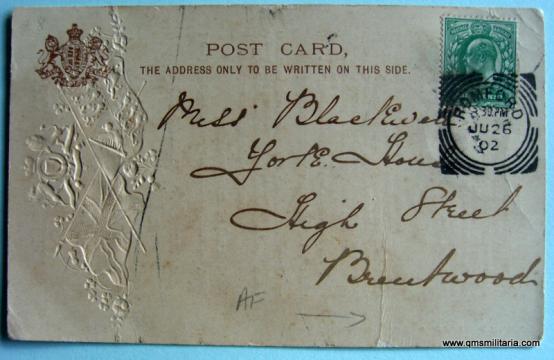 POST CARD,
THE ADDRESS ONLY TO BE WRITTEN ON THIS SIDE.
Miss Blackwell
York House
High Street
Brentwood
ROMFORD
.30PM
JU 26
02
AF
www.qmsmilitaria.com